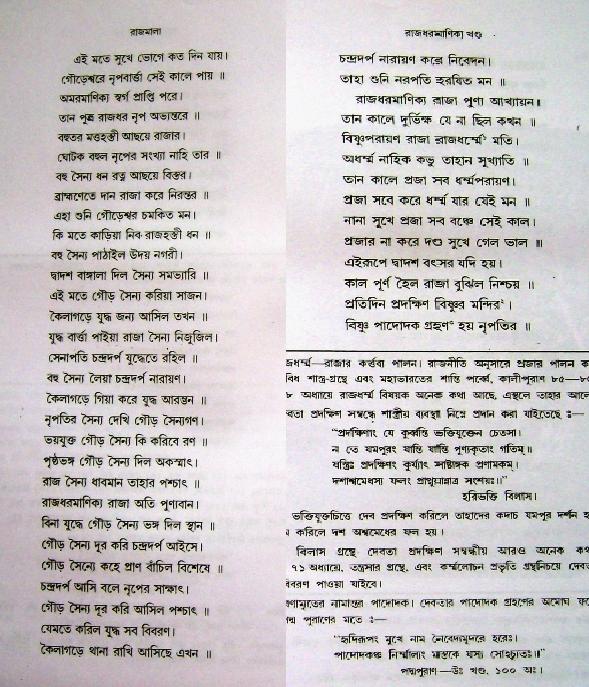 রাজমালা
এই মতে সুখে ভোগে কত দিন যায়।
গৌড়েশ্বরে নৃপবার্ত্তা সেই কালে পায় ॥
অমরমাণিক্য স্বর্গ প্রাপ্তি পরে।
তান পুত্র রাজধর নৃপ অভ্যন্তরে ॥
বহুতর মত্তহস্তী আছয়ে রাজার।
ঘোটক বহুল নৃপের সংখ্যা নাহি তার ॥
বহু সৈন্য ধন রত্ন আছয়ে বিস্তর।
ব্রাহ্মণেতে দান রাজা করে নিরন্তর ॥
এহা শুনি গৌড়েশ্বর চমকিত মন।
কি মতে কাড়িয়া নিব রাজহস্তী ধন ॥
বহু সৈন্য পাঠাইল উদয় নগরী।
দ্বাদশ বাঙ্গালা দিল সৈন্য সমভ্যারি ॥
এই মতে গৌড় সৈন্য করিয়া সাজন।
কৈলাগড়ে যুদ্ধ জন্য আসিল তখন ॥
যুদ্ধ বার্ত্তা পাইয়া রাজা সৈন্য নিজুজিল।
সেনাপতি চন্দ্রদর্প যুদ্ধেতে রহিল ॥
বহু সৈন্য লৈয়া চন্দ্রদর্প নারায়ণ।
কৈলাগড়ে গিয়া করে যুদ্ধ আরম্ভন ॥
নৃপতির সৈন্য দেখি গৌড় সৈন্যগণ।
ভয়যুক্ত গৌড় সৈন্য কি করিবে রণ ॥
পৃষ্ঠভঙ্গ গৌড় সৈন্য দিল অকস্মাৎ।
রাজ সৈন্য ধাবমান তাহার পশ্চাৎ ॥
রাজধরমাণিক্য রাজা অতি পুণ্যবান।
বিনা যুদ্ধে গৌড় সৈন্য ভঙ্গ দিল স্থান ॥
গৌড় সৈন্য দূর করি চন্দ্রদর্প আইসে।
গৌড় সৈন্যে কহে প্রাণ বাঁচিল বিশেষে ॥
চন্দ্রদর্প আসি বলে নৃপের সাক্ষাৎ।
গৌড় সৈন্য দূর করি আসিল পশ্চাৎ ॥
যেমতে করিল যুদ্ধ সব বিবরণ।
কৈলাগড়ে থানা রাখি আসিছে এখন ॥
রাজধরমাণিক্য খণ্ড
চন্দ্রদর্প নারায়ণ করে নিবেদন।
তাহা শুনি নরপতি হরষিত মন ॥
রাজধরমাণিক্য রাজা পুণ্য আখ্যায়ন।
তান কালে দুর্ভিক্ষ যে না ছিল কখন ॥
বিষ্ণুপরায়ণ রাজা রাজধর্ম্মে মতি।
অধর্ম্ম নাহিক কভু তাহান সুখ্যাতি ॥
তান কালে প্রজা সব ধর্ম্মপরায়ণ।
প্রজা সবে করে ধর্ম্ম যার যেই মন ॥
নানা সুখে প্রজা সব বঞ্চে সেই কাল।
প্রজার না করে দণ্ড সুখে গেল ভাল ॥
এইরূপে দ্বাদশ বৎসর যদি হয়।
কাল পূর্ণ হৈল রাজা বুঝিল নিশ্চয় ॥
প্রতিদিন প্রদক্ষিণ বিষ্ণুর মন্দির।
বিষ্ণু পাদোদক গ্রহণ হয় নৃপতির ॥
জধর্ম্ম—রাজার কর্ত্তব্য পালন। রাজনীতি অনুসারে প্রজার পালন ক
বিধ শাস্ত্র-গ্রন্থে এবং মহাভারতের শান্তি পর্ব্বে, কালীপুরাণ ৮৫—৮
৮ অধ্যায়ে রাজধর্ম্ম বিষয়ক অনেক কথা আছে, এস্থলে তাহার আলো
বতা প্রদক্ষিণ সম্বন্ধে শাস্ত্রীয় ব্যবস্থা নিম্নে প্রদান করা যাইতেছে ঃ—
“প্রদক্ষিণাং যে কুর্ব্বন্তি ভক্তিযুক্তেন চেতসা।
ন তে যমপুরং যান্তি যান্তি পুণ্যকৃতাং গতিম্॥
যস্ত্রিঃ প্রদক্ষিণং কুর্য্যাৎ সাষ্টাঙ্গক প্রণামকম্।
দশাশ্বমেধস্য ফলং প্রাপ্নুয়ান্নাত্র সংশয়ঃ॥”
হরিভক্তি বিলাস।
ভক্তিযুক্তচিত্তে দেব প্রদক্ষিণ করিলে তাহাদের কদাচ যমপুর দর্শন হ
করিলে দশ অশ্বমেধের ফল হয়।
বিলাস গ্রন্থে দেবতা প্রদক্ষিণ সম্বন্ধীয় আরও অনেক কথ
৭.১ অধ্যায়ে, তন্ত্রসার গ্রন্থে, এবং কর্ম্মলোচন প্রভৃতি গ্রন্থনিচয়ে দেবত
বিবরণ পাওয়া যাইবে।
ণামৃতের নামান্তর পাদোদক। দেবতার পাদোদক গ্রহণের অমোঘ ফ
দ্ম পুরাণের মতে ঃ—
“হৃদিরূপং মুখে নাম নৈবেদ্যমুদরে হরেঃ।
পাদোদকঞ্চ নির্ম্মাল্যং মস্তকে যস্য সোহচ্যুতঃ॥”
পদ্মপুরাণ—উঃ খণ্ড, ১০০ অঃ।